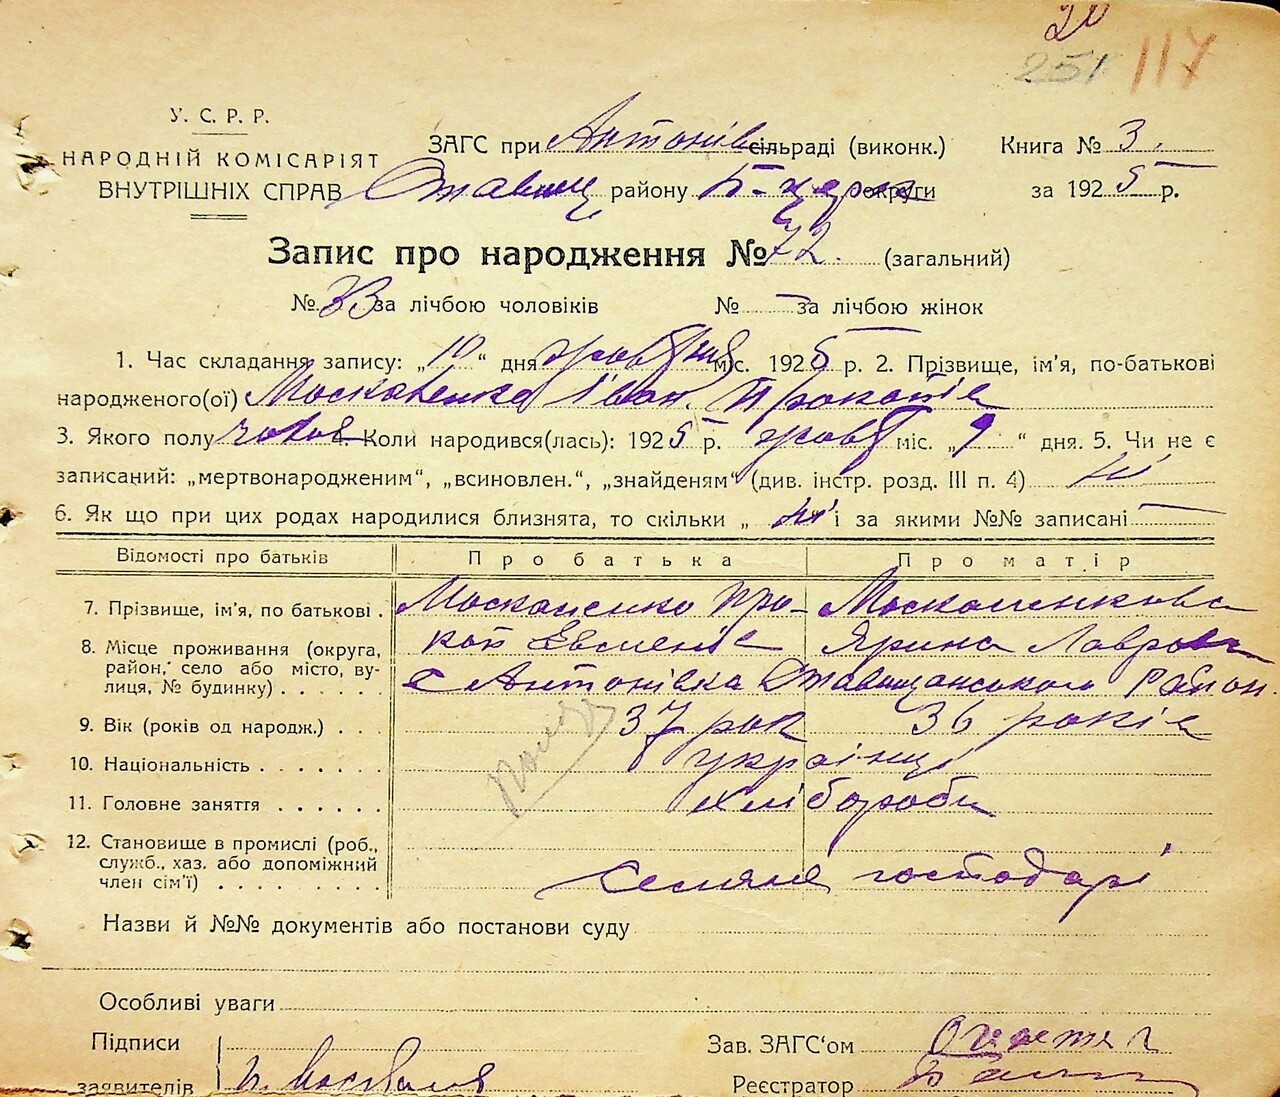 20
251 117
У. С. Р. Р.
НАРОДНІЙ КОМІСАРІЯТ
ВНУТРІШНІХ СПРАВ
ЗАГС при Антонів сільраді (виконк.) Книга № 3.
Ставищ району Б-церк округи за 1925 р.
Запис про народження № 72. (загальний)
№ 33 за лічбою чоловіків № — за лічбою жінок
1. Час складання запису: „10“ дня жовтня міс. 1925 р. 2. Прізвище, ім'я, по-батькові
народженого(ої) Москаленко Іван Прокопів
3. Якого полу чолов 4. Коли народився(лась): 1925 р. жовт міс. „9“ дня. 5. Чи не є
записаний: „мертвонародженим“, „всиновлен.“, „знайденям“ (див. інстр. розд. III п. 4) ні
6. Як що при цих родах народилися близнята, то скільки „ ні і за якими №№ записані —
Відомості про батьків Про батька Про матір
7. Прізвище, ім'я, по батькові . Москаленко Про- Москаленкова
коп Евменів Ярина Лавров
8. Місце проживання (округа,
район, село або місто, ву-
лиця, № будинку) . . . . . с Антонівка Ставищанського Район.
9. Вік (років од народж.) . . . 37 рок 36 років
10. Національність . . . . . . . українці
11. Головне заняття . . . . . . хлібороби
12. Становище в промислі (роб.,
служб., хаз. або допоміжний
член сім'ї) . . . . . . . . Селяне господарі
Назви й №№ документів або постанови суду
Особливі уваги
Підписи
заявителів
Зав. ЗАГС'ом
Реєстратор